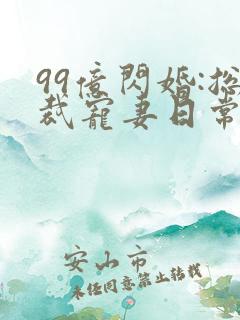 99億閃婚:總
裁寵妻日常
安山市
未任同意禁止转载